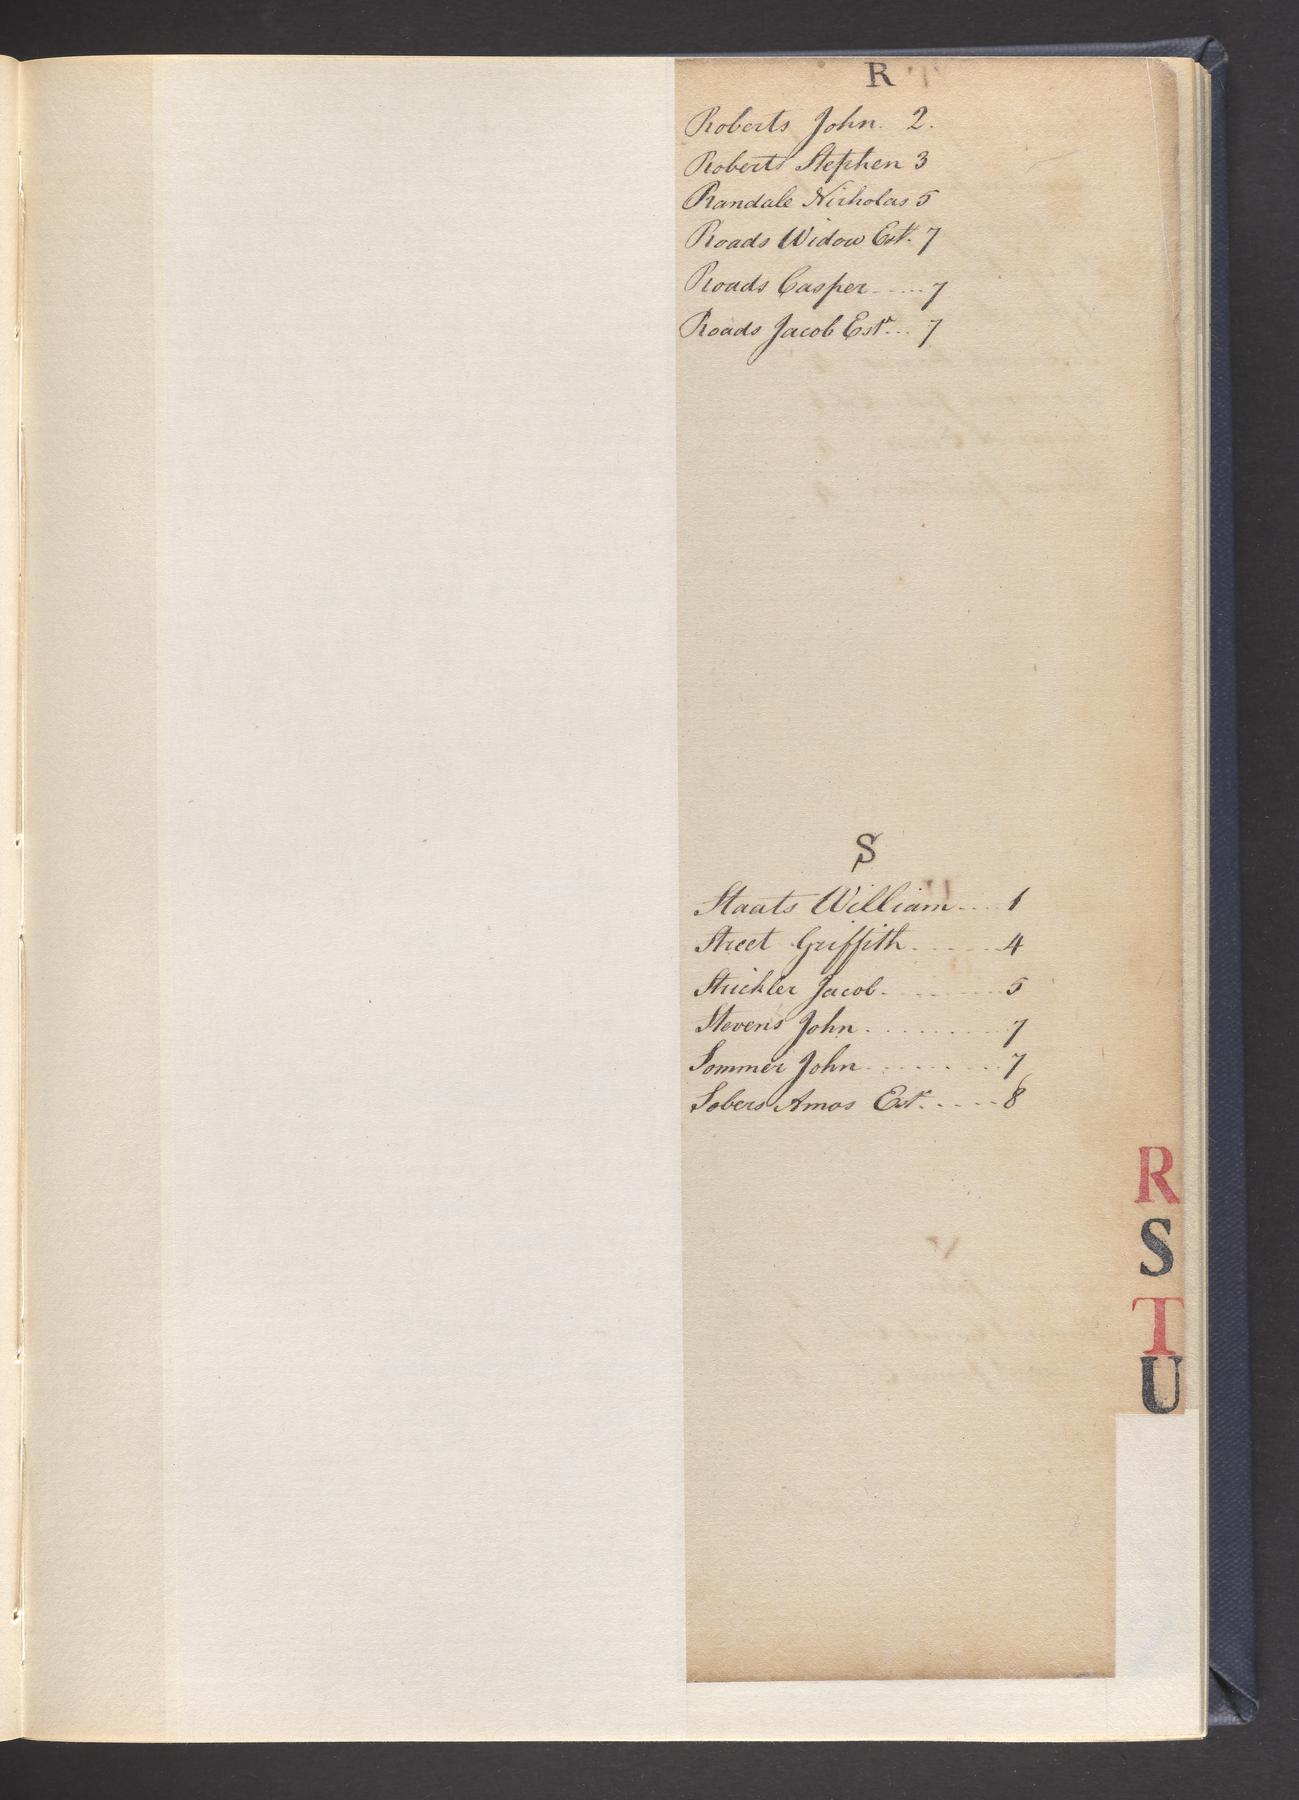 R
Roberts John. 2.
Roberts Stephen 3
Randale Nicholas 5
Roads Widow Est. 7
Roads Casper ..... 7
Roads Jacob Estr... 7
S
Staats William.... 1
Street Griffith....... 4
Strickler Jacob........ 5
Stevens John......... 7
Sommer John......... 7
Sobers Amos Estr..... 8
R
S
T
U